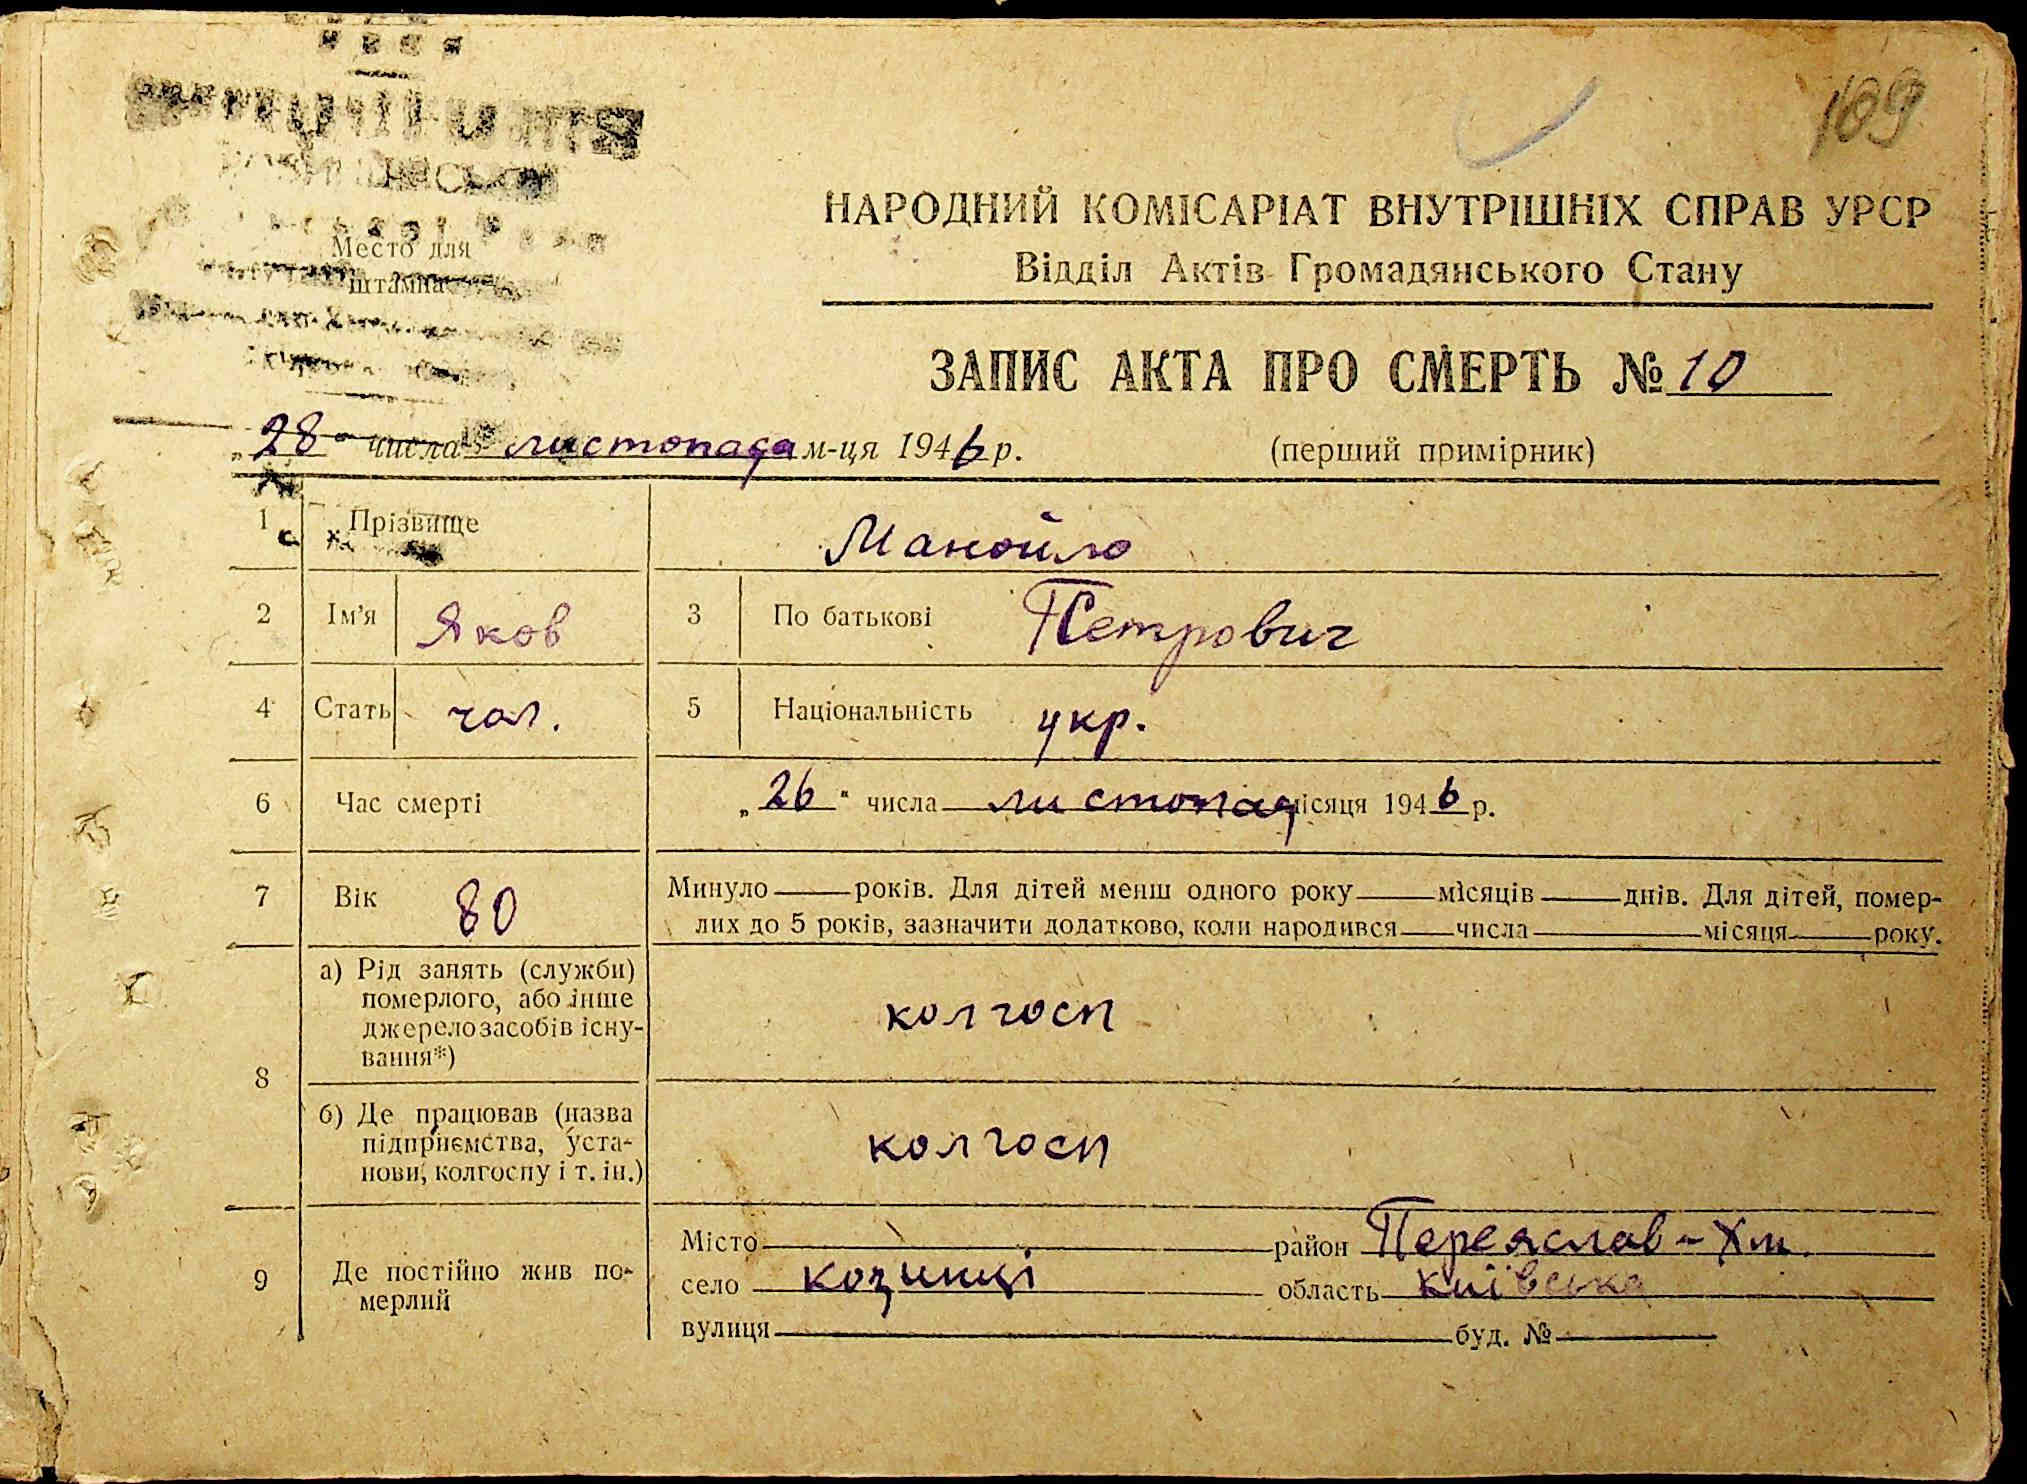 109
НАРОДНИЙ КОМІСАРІАТ ВНУТРІШНІХ СПРАВ УРСР
Відділ Актів Громадянського Стану
Место для
штампа
ЗАПИС АКТА ПРО СМЕРТЬ № 10
„28" числа листопада м-ця 1946 р. (перший примірник)
1 Прізвище Манойло
2 Ім'я Яков 3 По батькові Петрович
4 Стать чол. 5 Національність укр.
6 Час смерті „26" числа листопад місяця 1946 р.
7 Вік 80 Минуло ____ років. Для дітей менш одного року ____ місяців ____ днів. Для дітей, помер-
лих до 5 років, зазначити додатково, коли народився ____ числа ____ місяця ____ року.
8 а) Рід занять (служби)
померлого, або інше
джерело засобів існу-
вання*) колгосп
б) Де працював (назва
підприємства, уста-
нови, колгоспу і т. ін.) колгосп
9 Де постійно жив по-
мерлий
Місто ____ район Переяслав-Хм.
село козинці область київська
вулиця ____ буд. № ____